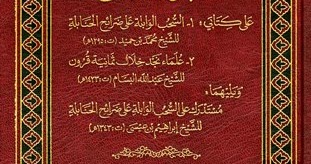 على كتابي: ١- السحب الوابلة على ضرائح الحنابلة
للشيخ محمد بن حميد (ت: ١٢٩٥هـ)
٢- علماء نجد خلال ثمانية قرون
للشيخ عبد الله البسام (ت: ١٤٢٣هـ)
وَيَليهما:
مستدرك على السحب الوابلة على ضرائح الحنابلة
للشيخ إبراهيم بن عيسى (ت: ١٣٤٣هـ)